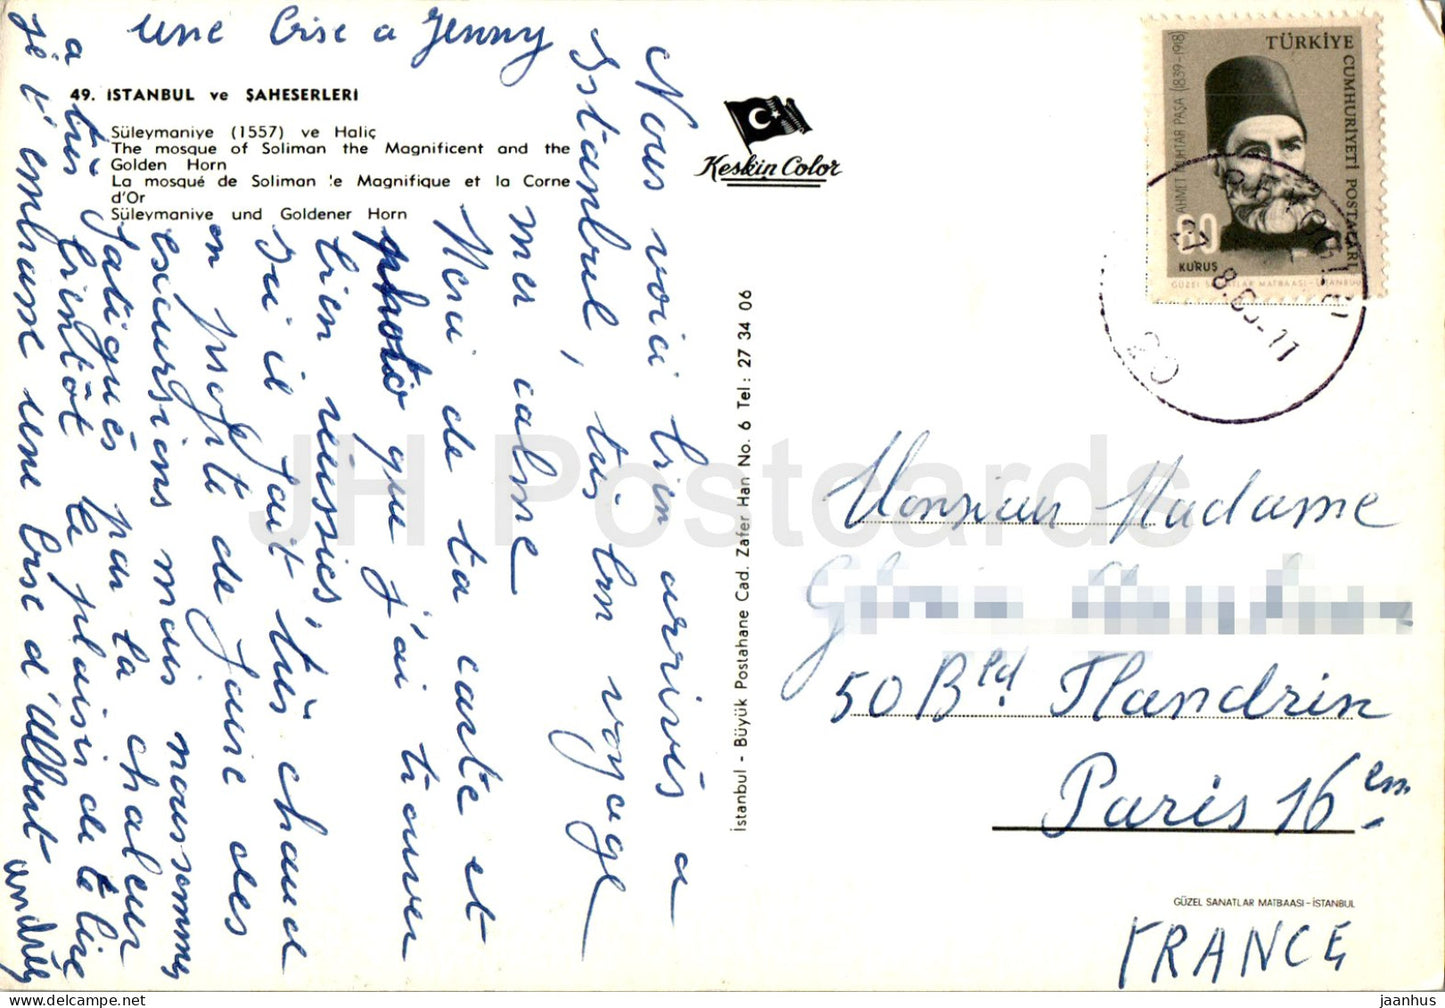 une Bise a Jenny
49. İSTANBUL ve ŞAHESERLERİ
Süleymaniye (1557) ve Haliç
The mosque of Soliman the Magnificent and the
Golden Horn
La mosqué de Soliman le Magnifique et la Corne
d'Or
Süleymaniye und Goldener Horn
Nous voici bien arrivés a
Istanbul, très bon voyage
mer calme
Merci de ta carte et
photo que j'ai trouver
bien réussies,
Ici il fait très chaud
on profite de faire des
escursions mais nous sommes
très fatigués par la chaleur
a bientôt le plaisir de te lire
je t'embrasse une bise d'Albert
andrée
Keskin Color
İstanbul - Büyük Postahane Cad. Zafer Han No. 6 Tel: 27 34 06
TÜRKİYE CUMHURİYETİ POSTALARI
AHMET MUHTAR PAŞA (1839-1918)
60
KURUŞ
GÜZEL SANATLAR MATBAASI - İSTANBUL
JH Postcards
Monsieur Madame
50 Bld Flandrin
Paris 16em
GÜZEL SANATLAR MATBAASI - İSTANBUL
FRANCE
jaanhus